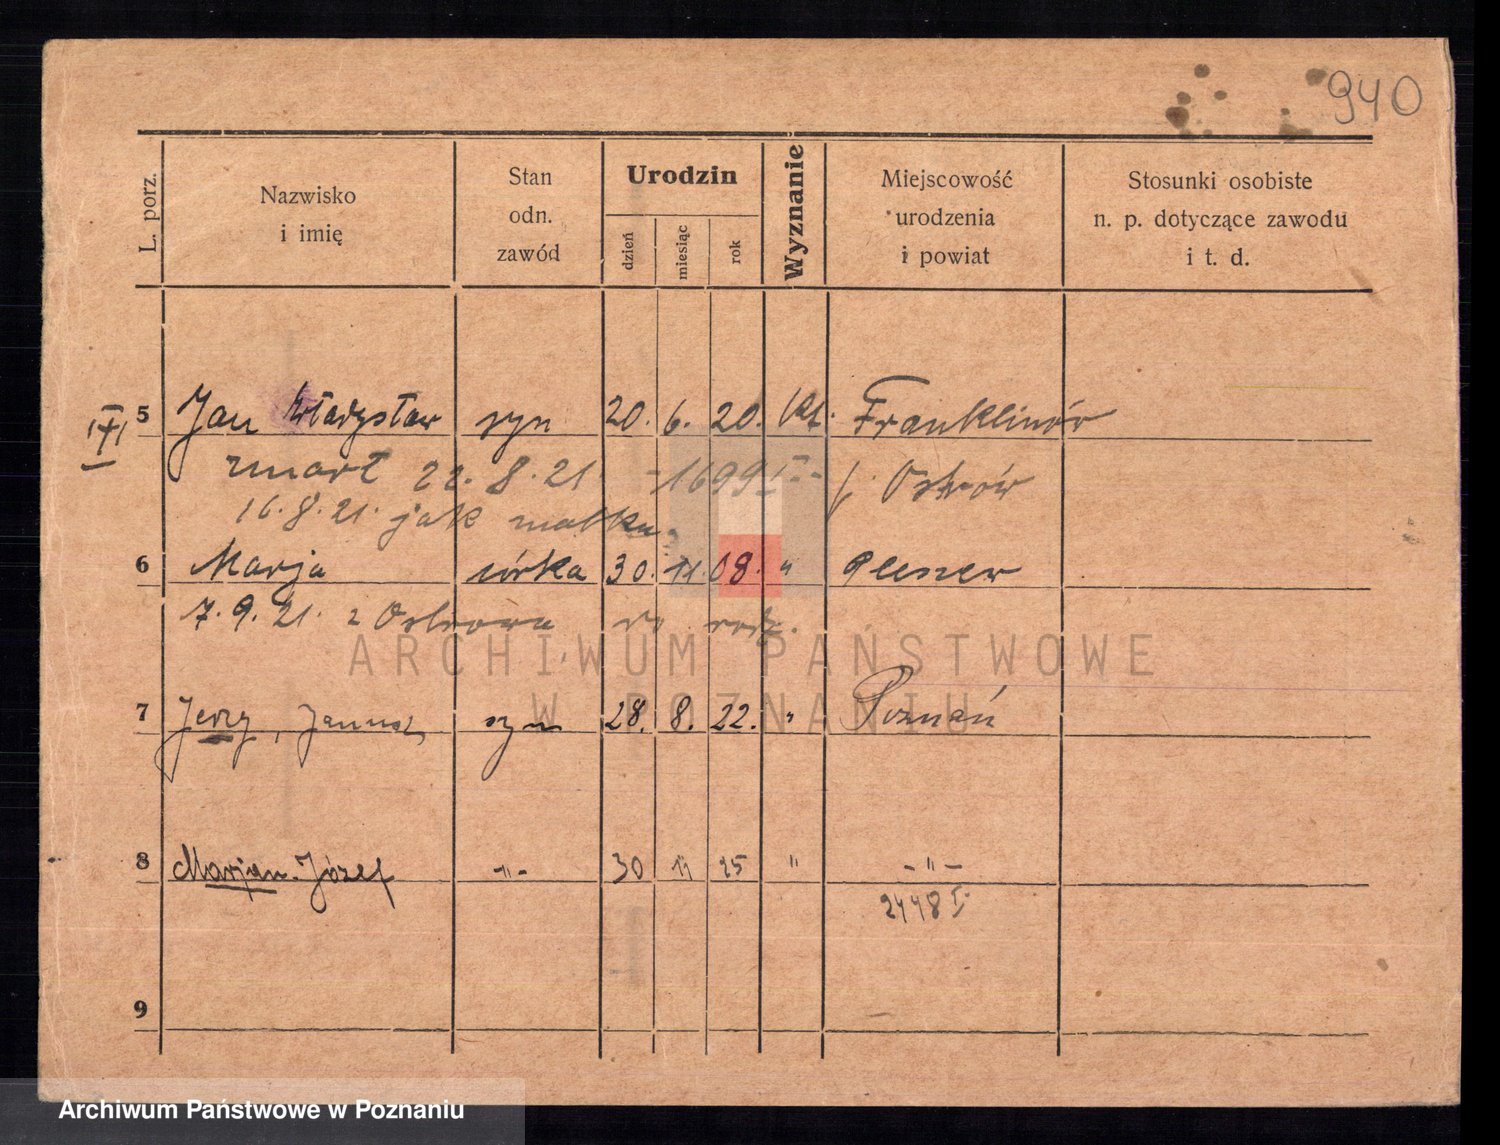 940
L. porz.
Nazwisko
i imię
Stan
odn.
zawód
Urodzin
dzień
miesiąc
rok
Wyznanie
Miejscowość
urodzenia
i powiat
Stosunki osobiste
n. p. dotyczące zawodu
i t. d.
5 Jan Władysław syn 20. 6. 20. kt. Franklinów
zmarł 22. 8. 21. - 1699 I - p. Ostrów
16. 8. 21. jak matka.
6 Marja córka 30. 11. 08. " Pleszew
7. 9. 21. z Ostrowa do rodz.
ARCHIWUM PAŃSTWOWE
W POZNANIU
7 Jerzy, Janusz syn 28. 8. 22. " Poznań
8 Marjan-Józef -"- 30 11 25 " -"-
2448 I
9
Archiwum Państwowe w Poznaniu